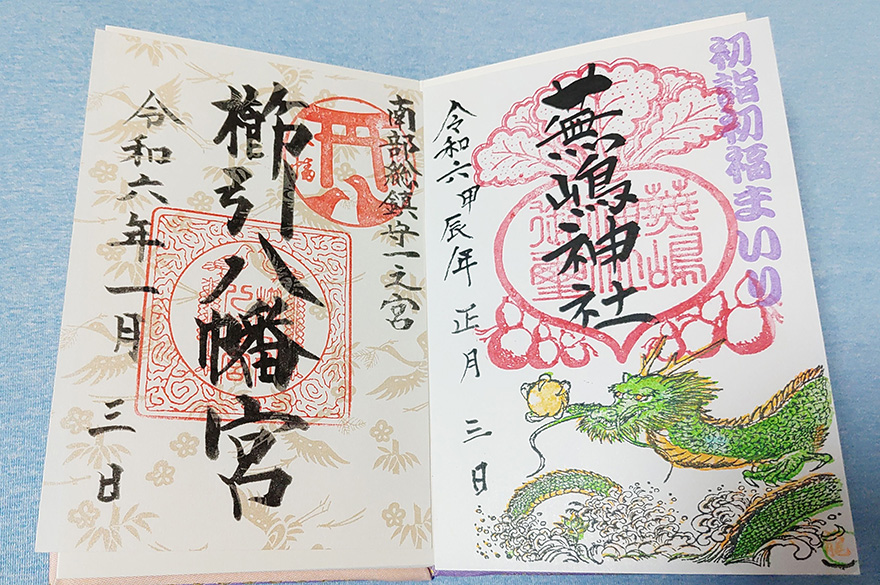 初詣初福まいり
蕪嶋神社
令和六甲辰年 正月 三日
南部総鎮守一之宮
櫛引八幡宮
令和六年一月 三日